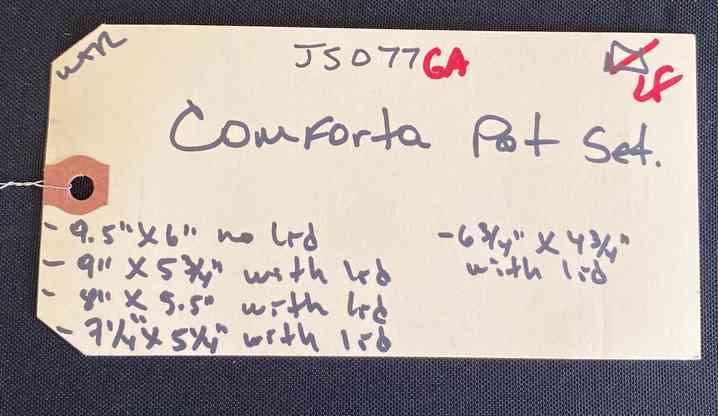 WTR
JS077GA
LF
Comforta Pot Set.
- 9.5" X 6" no lid
- 9" X 5 3/4" with lid
- 8" X 5.5" with lid
- 7 1/4" X 5 1/4" with lid
- 6 3/4" X 4 3/4"
with lid